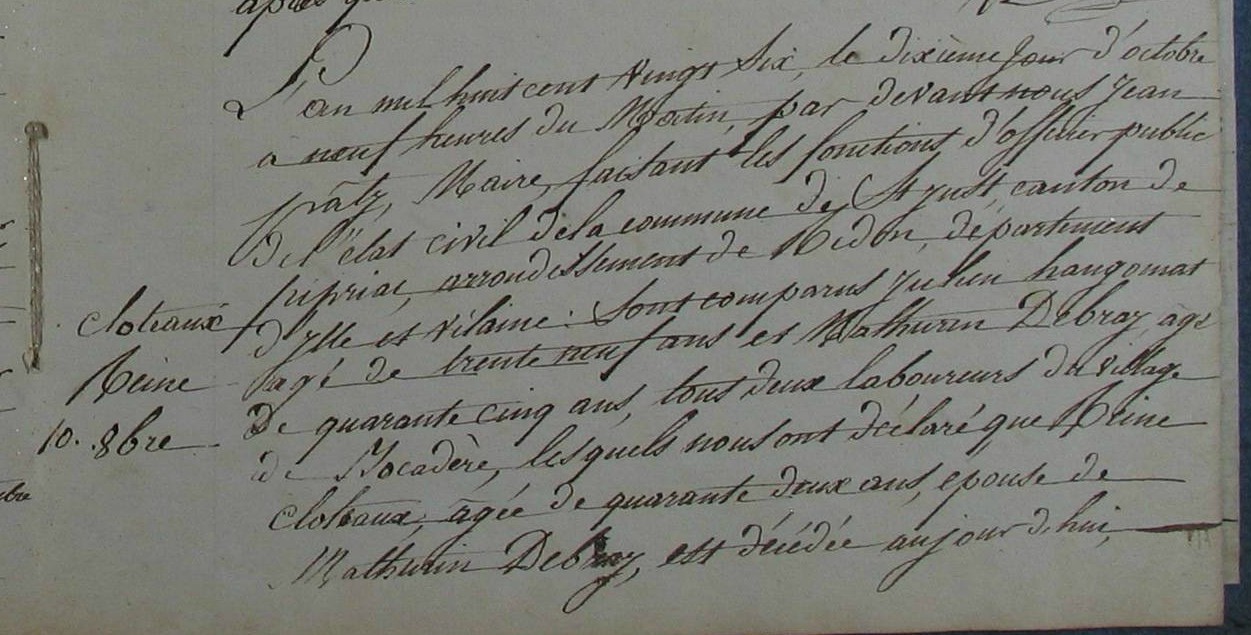 après
L'an mil huit cent vingt six, le dixième jour d'octobre
a neuf heures du Matin, par devant nous Jean
pâtz, Maire, faisant les fonctions d'officier public
De l'état civil de la commune de St just, canton de
pipriac, arrondissement de Redon, département
d'ylle et vilaine : Sont comparus Julien hangomat
agé de trente neuf ans et Mathurin Debray, agé
De quarante cinq ans, tous deux laboureurs du village
de Bocadève, lesquels nous ont déclaré que Reine
cloteaux, agée de quarante deux ans, epouse de
Mathurin Debray, est décédée aujourd'hui,
cloteaux
Reine
10. 8bre
bre